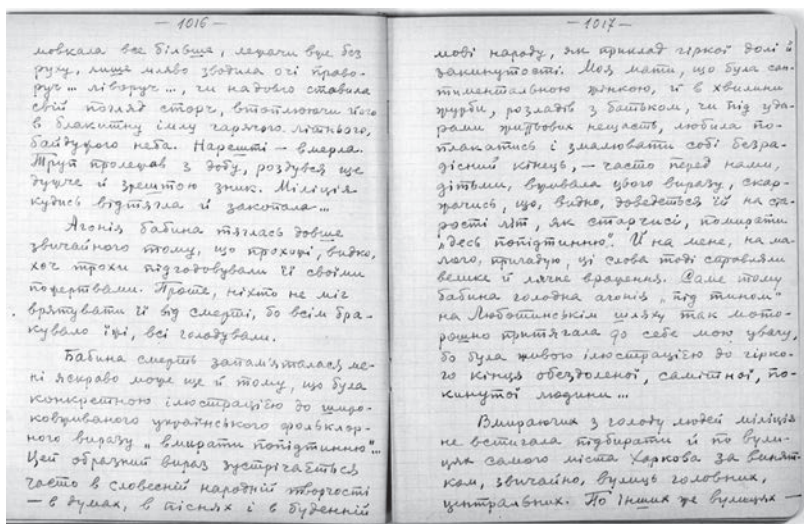 — 1016 —
мовкала все більше, лежачи вже без
руху, лише мляво зводила очі право-
руч... ліворуч..., чи надовго ставила
свій погляд сторч, втоплюючи його
в блакитну імлу гарячого літнього,
байдужого неба. Нарешті – вмерла.
Труп пролежав з добу, роздувся ще
дужче й зрештою зник. Міліція
кудись відтягла й закопала...
Агонія бабина тяглась довше
звичайного тому, що прохожі, видко,
хоч трохи підгодовували її своїми
пожертвами. Проте, ніхто не міг
врятувати її від смерті, бо всім бра-
кувало їжі, всі голодували.
Бабина смерть запам'яталася ме-
ні яскраво може ще й тому, що була
конкретною ілюстрацією до широ-
ковживаного українського фольклор-
ного виразу „вмирати попідтинню"...
Цей образний вираз зустрічається
часто в словесній народній творчості
– в думах, в піснях і в буденній
— 1017 —
мові народу, як приклад гіркої долі й
закинутості. Моя мати, що була сен-
тиментальною жінкою, й в хвилини
журби, розладів з батьком, чи під уда-
рами життьових нещасть, любила по-
плакатись і змалювати собі безра-
дісний кінець, – часто перед нами,
дітьми, вживала цього виразу, скар-
жачись, що, видно, доведеться їй на ста-
рості літ, як старчисі, помирати
„десь попідтинню". Й на мене, на ма-
лого, пригадую, ці слова тоді справляли
велике й лячне враження. Саме тому
бабина голодна агонія „під тином"
на Люботинськім шляху так мото-
рошно притягала до себе мою увагу,
бо була живою ілюстрацією до гірко-
го кінця обездоленої, самітної, по-
кинутої людини...
Вмираючих з голоду людей міліція
не встигала підбирати й по вули-
цях самого міста Харкова за винят-
ком, звичайно, вулиць головних,
центральних. По інших же вулицях –